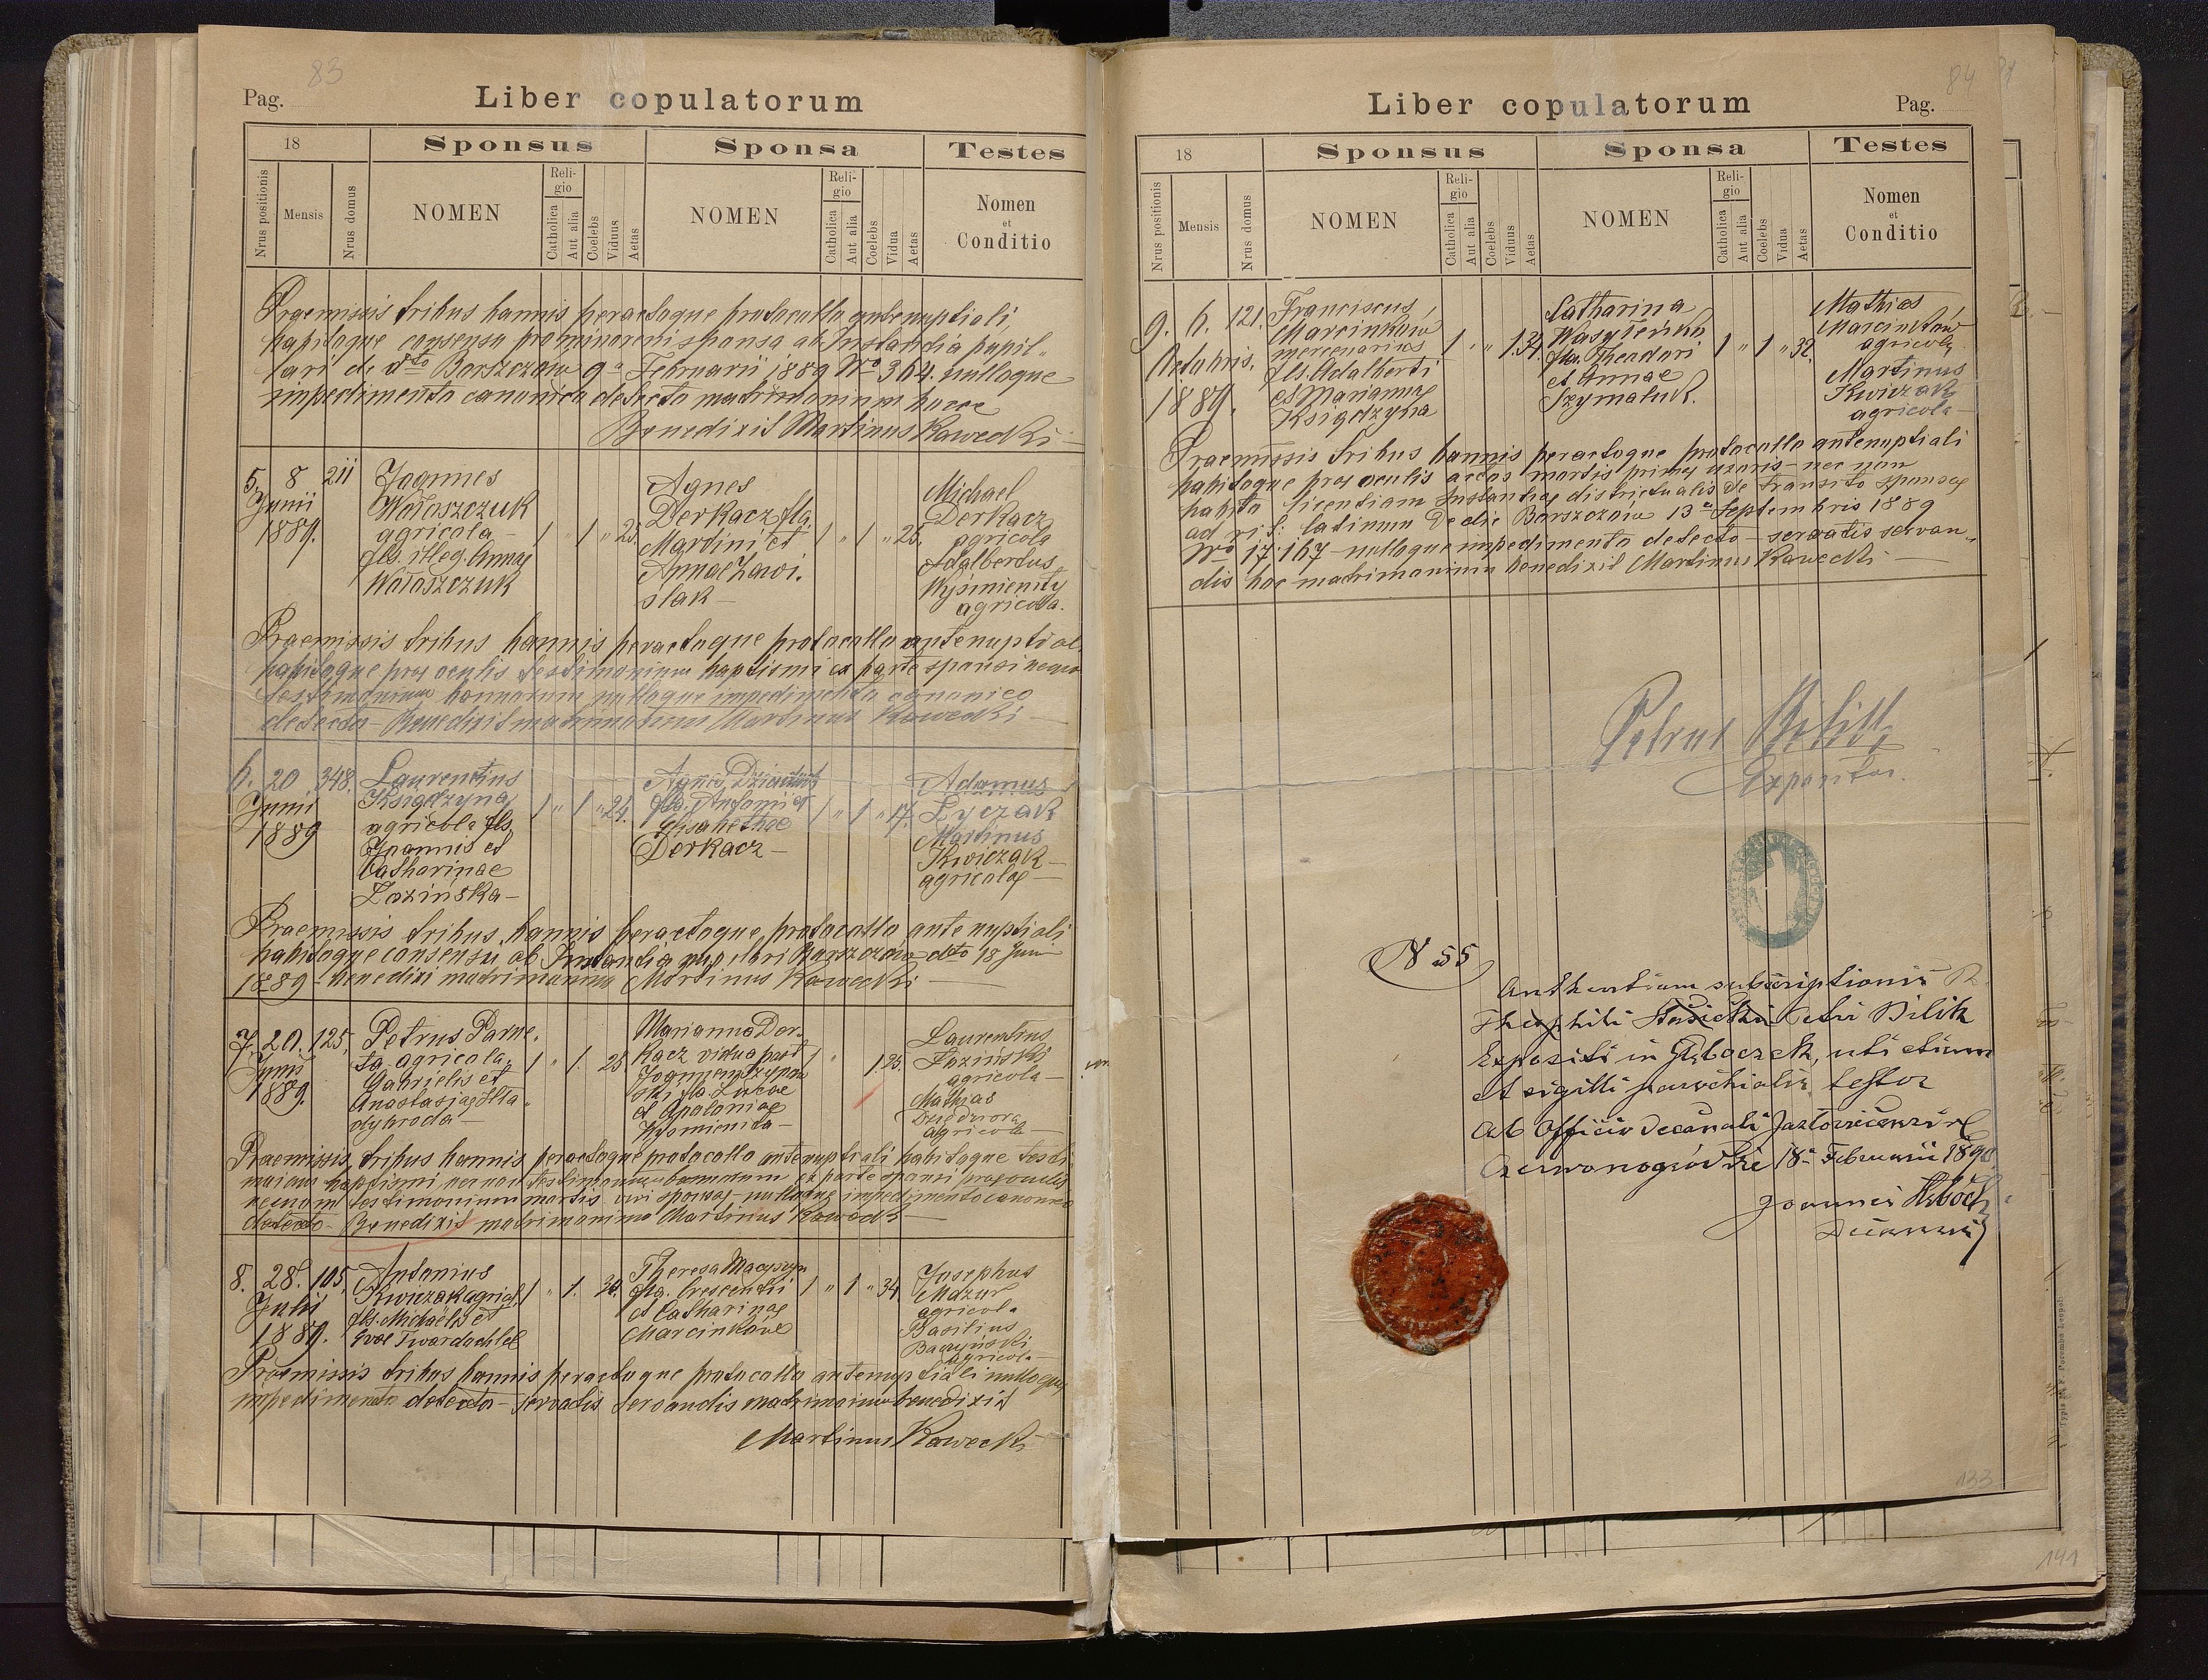 83
Pag.
Liber copulatorum
18
Sponsus
Sponsa
Testes
Nrus positionis
Mensis
Nrus domus
NOMEN
Reli-
gio
Catholica
Aut alia
Coelebs
Viduus
Aetas
NOMEN
Reli-
gio
Catholica
Aut alia
Coelebs
Vidua
Aetas
Nomen
et
Conditio
Praemissis tribus bannis peractoque protocollo antenuptiali,
habitoque consensu pro minoreni sponsa ab Instantia pupil-
lari de dto Borszczów 9a Februarii 1889 No 364. nulloque
impedimento canonico detecto matrimonium hocce
Benedixit Martinus Kawecki
5. 8 211
Junii
1889.
Joannes
Wołoszczuk
agricola
fls. illeg. Annae
Wołoszczuk
1 " 1 " 25.
Agnes
Derkacz fla.
Martini et
Annae Zawi.
ślak
1 " 1 " 25.
Michael
Derkacz
agricola
Adalbertus
Wyśmienity
agricola.
Praemissis tribus bannis peractoque protocollo antenuptial.
habitoque prae oculis testimonium baptismi ex parte sponsi necnon
testimonium bannorum nulloque impedimento canonico
detecto Benedixit matrimonium Martinus Kawecki
6. 20 348.
Junii
1889
Laurentius
Książdzyna
agricola fls.
Joannis et
Catharinae
Łozińska
1 " 1 " 24.
Agnes
fla. Antonii et
Elisabethae
Derkacz
1 " 1 " 17.
Adamus
Łyczak
Martinus
Kwiczak
agricolae
Praemissis tribus bannis peractoque protocollo ante nuptiali
habitoque consensu ab Instantia pupilari Borszczów dto 18 Juni
1889 benedixi matrimonium Martinus Kawecki
7. 20. 125.
Junii
1889.
Petrus Parne.
ta agricola
Gabrielis et
Anastasiae
1 " 1. 25
Marianna Der.
kacz vidua post
Joannem
fla. Lucae
et Apoloniae
Wyśmienita
1 " 1 25.
Laurentius
Łoziński
agricola
Mathias
agricola
Praemissis tribus bannis peractoque protocollo antenuptiali habitoque testi
monium baptismi necnon testimonium bannorum ex parte sponsi prae oculis
necnon testimonium mortis viri sponsae nulloque impedimento canonico
detecto Benedixit matrimonium Martinus Kawecki
8. 28. 105.
Julii
1889.
Antonius
Kwiczak agricl.
fls. Michaelis et
Evae Twardochleb
1 " 1. 30.
Theresa
fla. Crescentii
et Catharinae
Marcinków
1 " 1 " 34.
Josephus
Mazur
agricola
Basilius
Baczyński
agricola
Praemissis tribus bannis peractoque protocollo antenuptiali nulloque
impedimento detecto servatis servandis matrimonium benedixit
Martinus Kawecki
84
Liber copulatorum
Pag.
18
Sponsus
Sponsa
Testes
Nrus positionis
Mensis
Nrus domus
NOMEN
Reli-
gio
Catholica
Aut alia
Coelebs
Viduus
Aetas
NOMEN
Reli-
gio
Catholica
Aut alia
Coelebs
Vidua
Aetas
Nomen
et
Conditio
9. 6. 121.
Octobris.
1889.
Franciscus
Marcinków
mercenarius
fls. Adalberti
et Mariannae
Książdzyna
1 " " 1. 34.
Catharina
Wasyleńka
fla. Theodori
et Annae
Szymaluk.
1 " 1 " 32.
Mathias
Marcinków
agricola
Martinus
Kwiczak
agricola
Praemissis tribus bannis peractoque protocollo antenuptiali
habitoque prae oculis actos mortis primae uxoris nec non
habita licentiam Instantiae districtualis de transito sponsae
ad rit: latinum De die Borszczów 13a Septembris 1889
No 17.167 nulloque impedimento detecto servatis servan-
dis hoc matrimonium benedixit Martinus Kawecki
Petrus Bilik
Expositus.
N 55
Authentiam subscriptionis
Theophili Petri Bilik
Expositi in Głęboczek, uti etiam
et sigilli parochialis testor
Ab Officio Decanali Jazłoviecensi r.l.
Czerwonogródkie 18a Februarii 1890
Joannes
Decanus
133
141